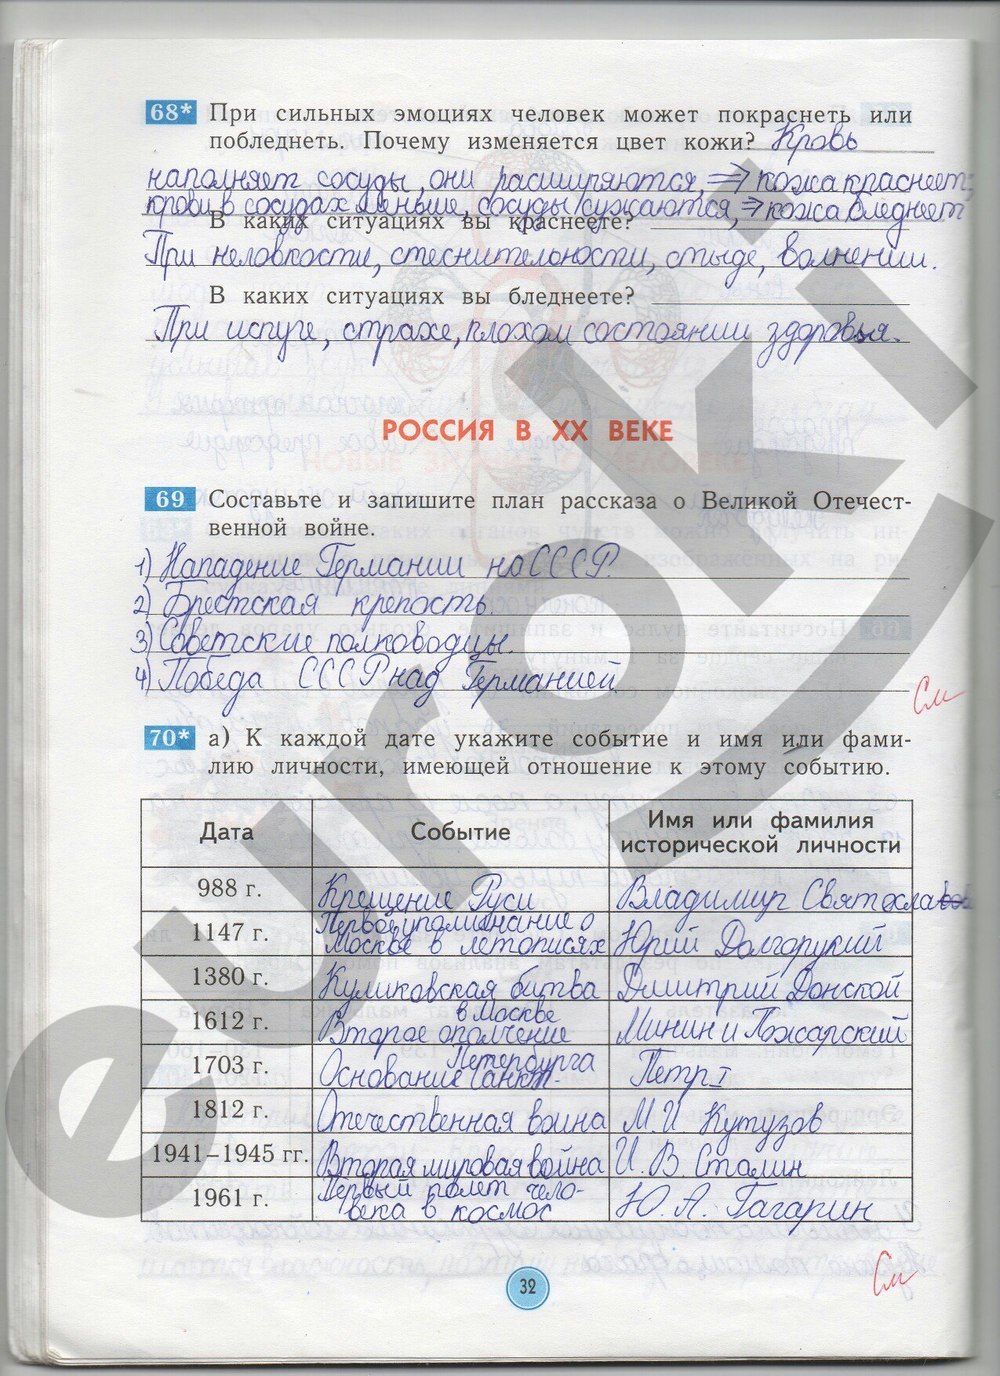 68* При сильных эмоциях человек может покраснеть или
побледнеть. Почему изменяется цвет кожи? Кровь
наполняет сосуды, они расширяются, => кожа краснеет;
крови в сосудах меньше, сосуды сужаются, => кожа бледнеет
В каких ситуациях вы краснеете?
При неловкости, стеснительности, стыде, волнении.
В каких ситуациях вы бледнеете?
При испуге, страхе, плохом состоянии здоровья.
РОССИЯ В XX ВЕКЕ
69 Составьте и запишите план рассказа о Великой Отечест-
венной войне.
1) Нападение Германии на СССР.
2) Брестская крепость.
3) Советские полководцы.
4) Победа СССР над Германией
См
70* а) К каждой дате укажите событие и имя или фами-
лию личности, имеющей отношение к этому событию.
Дата Событие Имя или фамилия
исторической личности
988 г. Крещение Руси Владимир Святослав
1147 г. Первое упоминание о
Москве в летописях Юрий Долгорукий
1380 г. Куликовская битва Дмитрий Донской
1612 г. Второе ополчение в Москве Минин и Пожарский
1703 г. Основание Санкт-Петербурга Петр I
1812 г. Отечественная война М. И. Кутузов
1941–1945 гг. Вторая мировая война И. В. Сталин
1961 г. Первый полет чело-
века в космос Ю. А. Гагарин
См
32
euroki